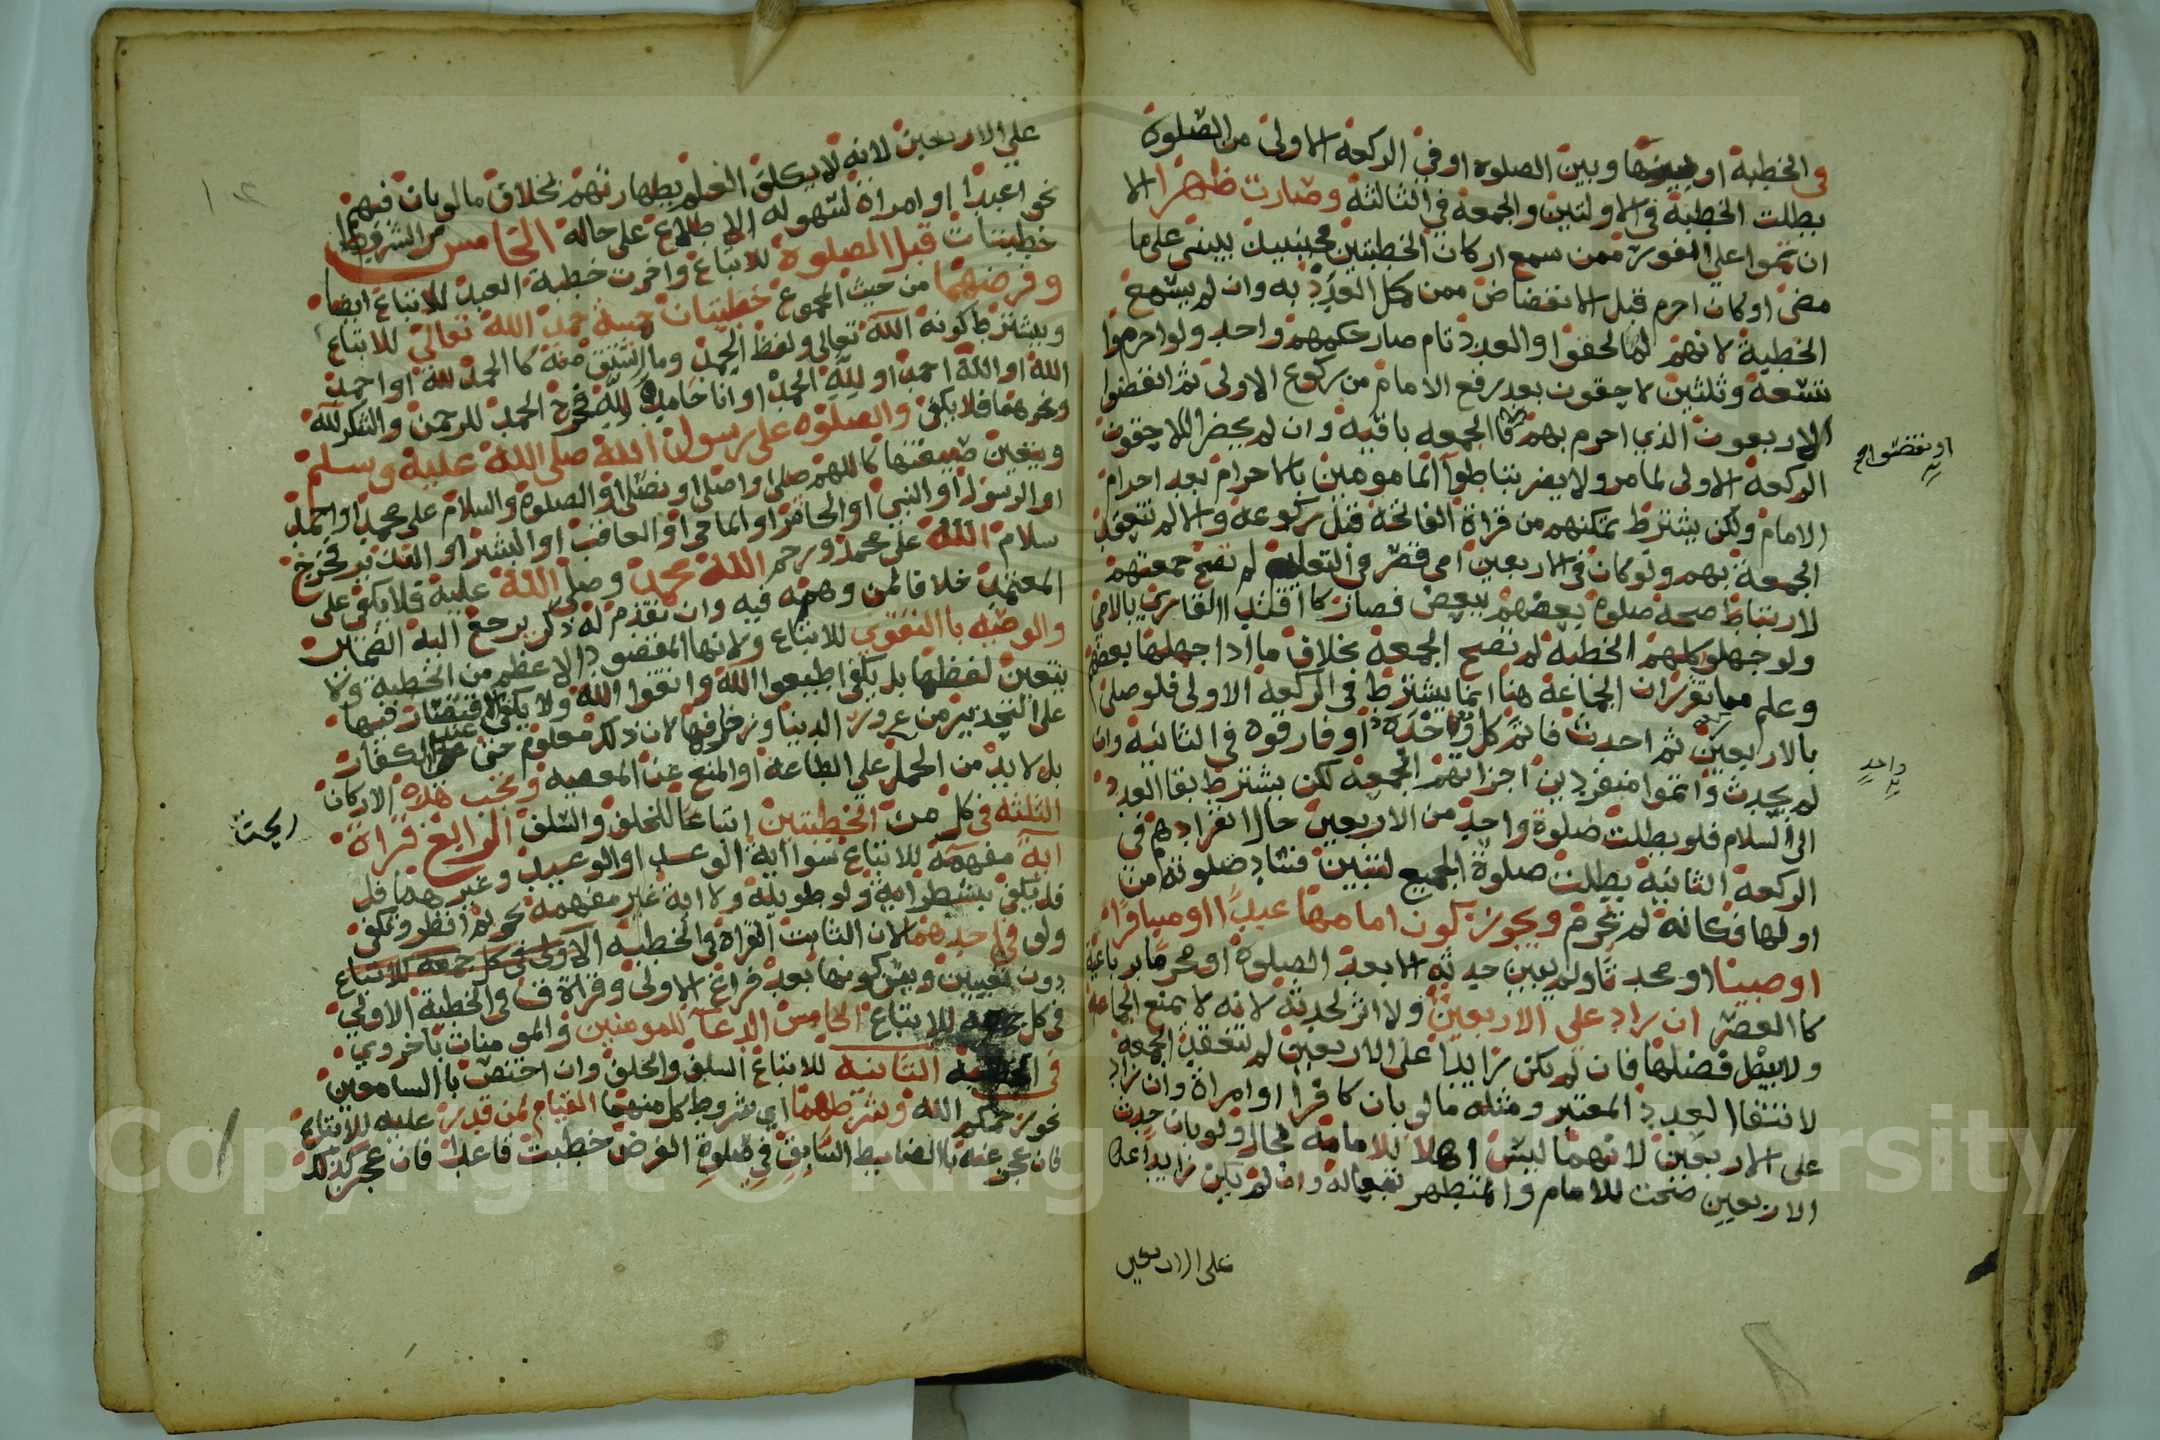 في الخطبة او بينها وبين الصلوه او في الركعه الاولى من الصلوة
بطلت الخطبة في الاولتين والجمعة في الثالثة وصارت ظهرا الا
ان تموا على الفور ممن سمع اركان الخطبتين فحينيذ يبني على ما
مضى او كان احرم قبل الانفضاض ممن كمل العدد به وان لم يسمع
الخطبة لانهم لما لحقوا والعدد تام صار حكمهم واحد ولو احرموا
تسعة وثلثين لاحقون بعد رفع الامام من ركوع الاولى ثم انفضوا
الاربعون الذي احرم بهم فالجمعه باقيه وان لم يحضر اللاحقون
الركعة الاولى لما مر ولا يضر تباطوا المامومين بالاحرام بعد احرام
الامام ولكن يشترط تمكنهم من قراة الفاتحة قبل ركوعه والا لم تنعقد
الجمعة بهم ولو كان في الاربعين امي قصر في التعلم لم تصح جمعتهم
لارتباط صحة صلوة بعضهم ببعض فصار كاقتدا القاري بالامي
ولو جهلوا كلهم الخطبة لم تصح الجمعة بخلاف ما اذا جهلها بعضهم
وعلم مما تقرر ان الجماعة هنا انما يشترط في الركعة الاولى فلو صلى
بالاربعين ثم احدث فاتم كل وحده او فارقوه في الثانيه وان
لم يحدث واتموا منفردين اجزاتهم الجمعة لكن يشترط بقا العدد
الى السلام فلو بطلت صلوة واحد من الاربعين حال انفرادهم في
الركعة الثانيه بطلت صلوة الجميع لتبين فساد صلوته من
اولها فكانه لم يحرم ويجوز كون امامها عبدا او مسافرا
او صبيا او محدثا ولم يبين حدثه الا بعد الصلوة او محرما برباعية
كالعصر ان زاد على الاربعين ولا اثر لحدثه لانه لا يمنع الجماعة
ولا يبطل فضلها فان لم يكن زايدا على الاربعين لم تنعقد الجمعة
لانتفا العدد المعتبر ومثله ما لو بان كافرا او امراة وان زاد
على الاربعين لانهما ليس اهلا للامامة بحال ولو بان حدث
الاربعين صحت للامام والمتطهر تبعا له وان لم يكن زايدا على
على الاربعين
او نفضوا
واحد
على الاربعين لانه لا يكلف العلم بطهارتهم بخلاف ما لو بان فيهم
نحو عبدا او امراة لسهولة الاطلاع على حاله الخامس من الشروط
خطبتان قبل الصلوة للاتباع واخرت خطبة العيد للاتباع ايضا
وفرضهما من حيث المجموع خطبتان خمسة حمد الله تعالى للاتباع
ويشترط كونه الله تعالى ولفظ الحمد وما اشتق منه كالحمد لله او احمد
الله او الله احمد او لله الحمد او انا حامد لله فخرج الحمد للرحمن والشكر لله
ونحوهما فلا يكفي والصلوه على رسول الله صلى الله عليه وسلم
ويتعين صيغتها كاللهم صلي واصلي او نصلي او الصلوة والسلام على محمد او احمد
او الرسول او النبي او الحاشر او الماحي او العاقب او البشير او النذير فخرج
سلام الله على محمد ورحم الله محمد وصلى الله عليه فلا يكفي على
المعتمد خلافا لمن وهم فيه وان تقدم له ذكر يرجع اليه الضمير
والوصيه بالتقوى للاتباع ولانها المقصود الاعظم من الخطبة ولا
يتعين لفظها بل يكفي اطيعوا الله واتقوا الله ولا يكفي الاقتصار فيها
على التحذير من غرور الدنيا وزخرفها لان ذلك معلوم حتى عند الكفار
بل لا بد من الحمل على الطاعة او المنع عن المعصيه وتجب هذه الاركان
الثلثه في كل من الخطبتين اتباعا للخلف والسلف الرابع قراة
اية مفهمة للاتباع سوا اية الوعد او الوعيد وغيرهما فل
فلا يكفي بشطر اية ولو طويلة ولا اية غير مفهمة نحو ثم نظر وتكفي
ولو في احدهما لان الثابت القراة في الخطبة الاولى في كل جمعه للاتباع
دون تعيين ويسن كونها بعد فراغ الاولى وقراة ق في الخطبة الاولى
في كل جمعه للاتباع الخامس الدعا للمومنين والمومنات باخروي
في الخطبة الثانيه للاتباع السلف والخلف وان اختص بالسامعين
نحو رحمكم الله وشرطهما اي شروط كل منهما القيام لمن قدر عليه للاتباع
فان عجز عنه بالضابط السابق في صلوة الفرض خطبت قاعدا فان عجز كذلك